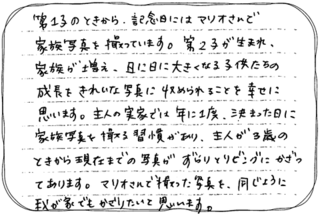 第1子のときから、記念日にはマリオさんで
家族写真を撮っています。第2子が生まれ、
家族が増え、日に日に大きくなる子供たちの
成長をきれいな写真に収められることを幸せに
思います。主人の実家では年に1度、決まった日に
家族写真を撮る習慣があり、主人が3歳の
ときから現在までの写真がずらりとリビングにかざっ
てあります。マリオさんで撮った写真を、同じように
我が家でもかざりたいと思います。